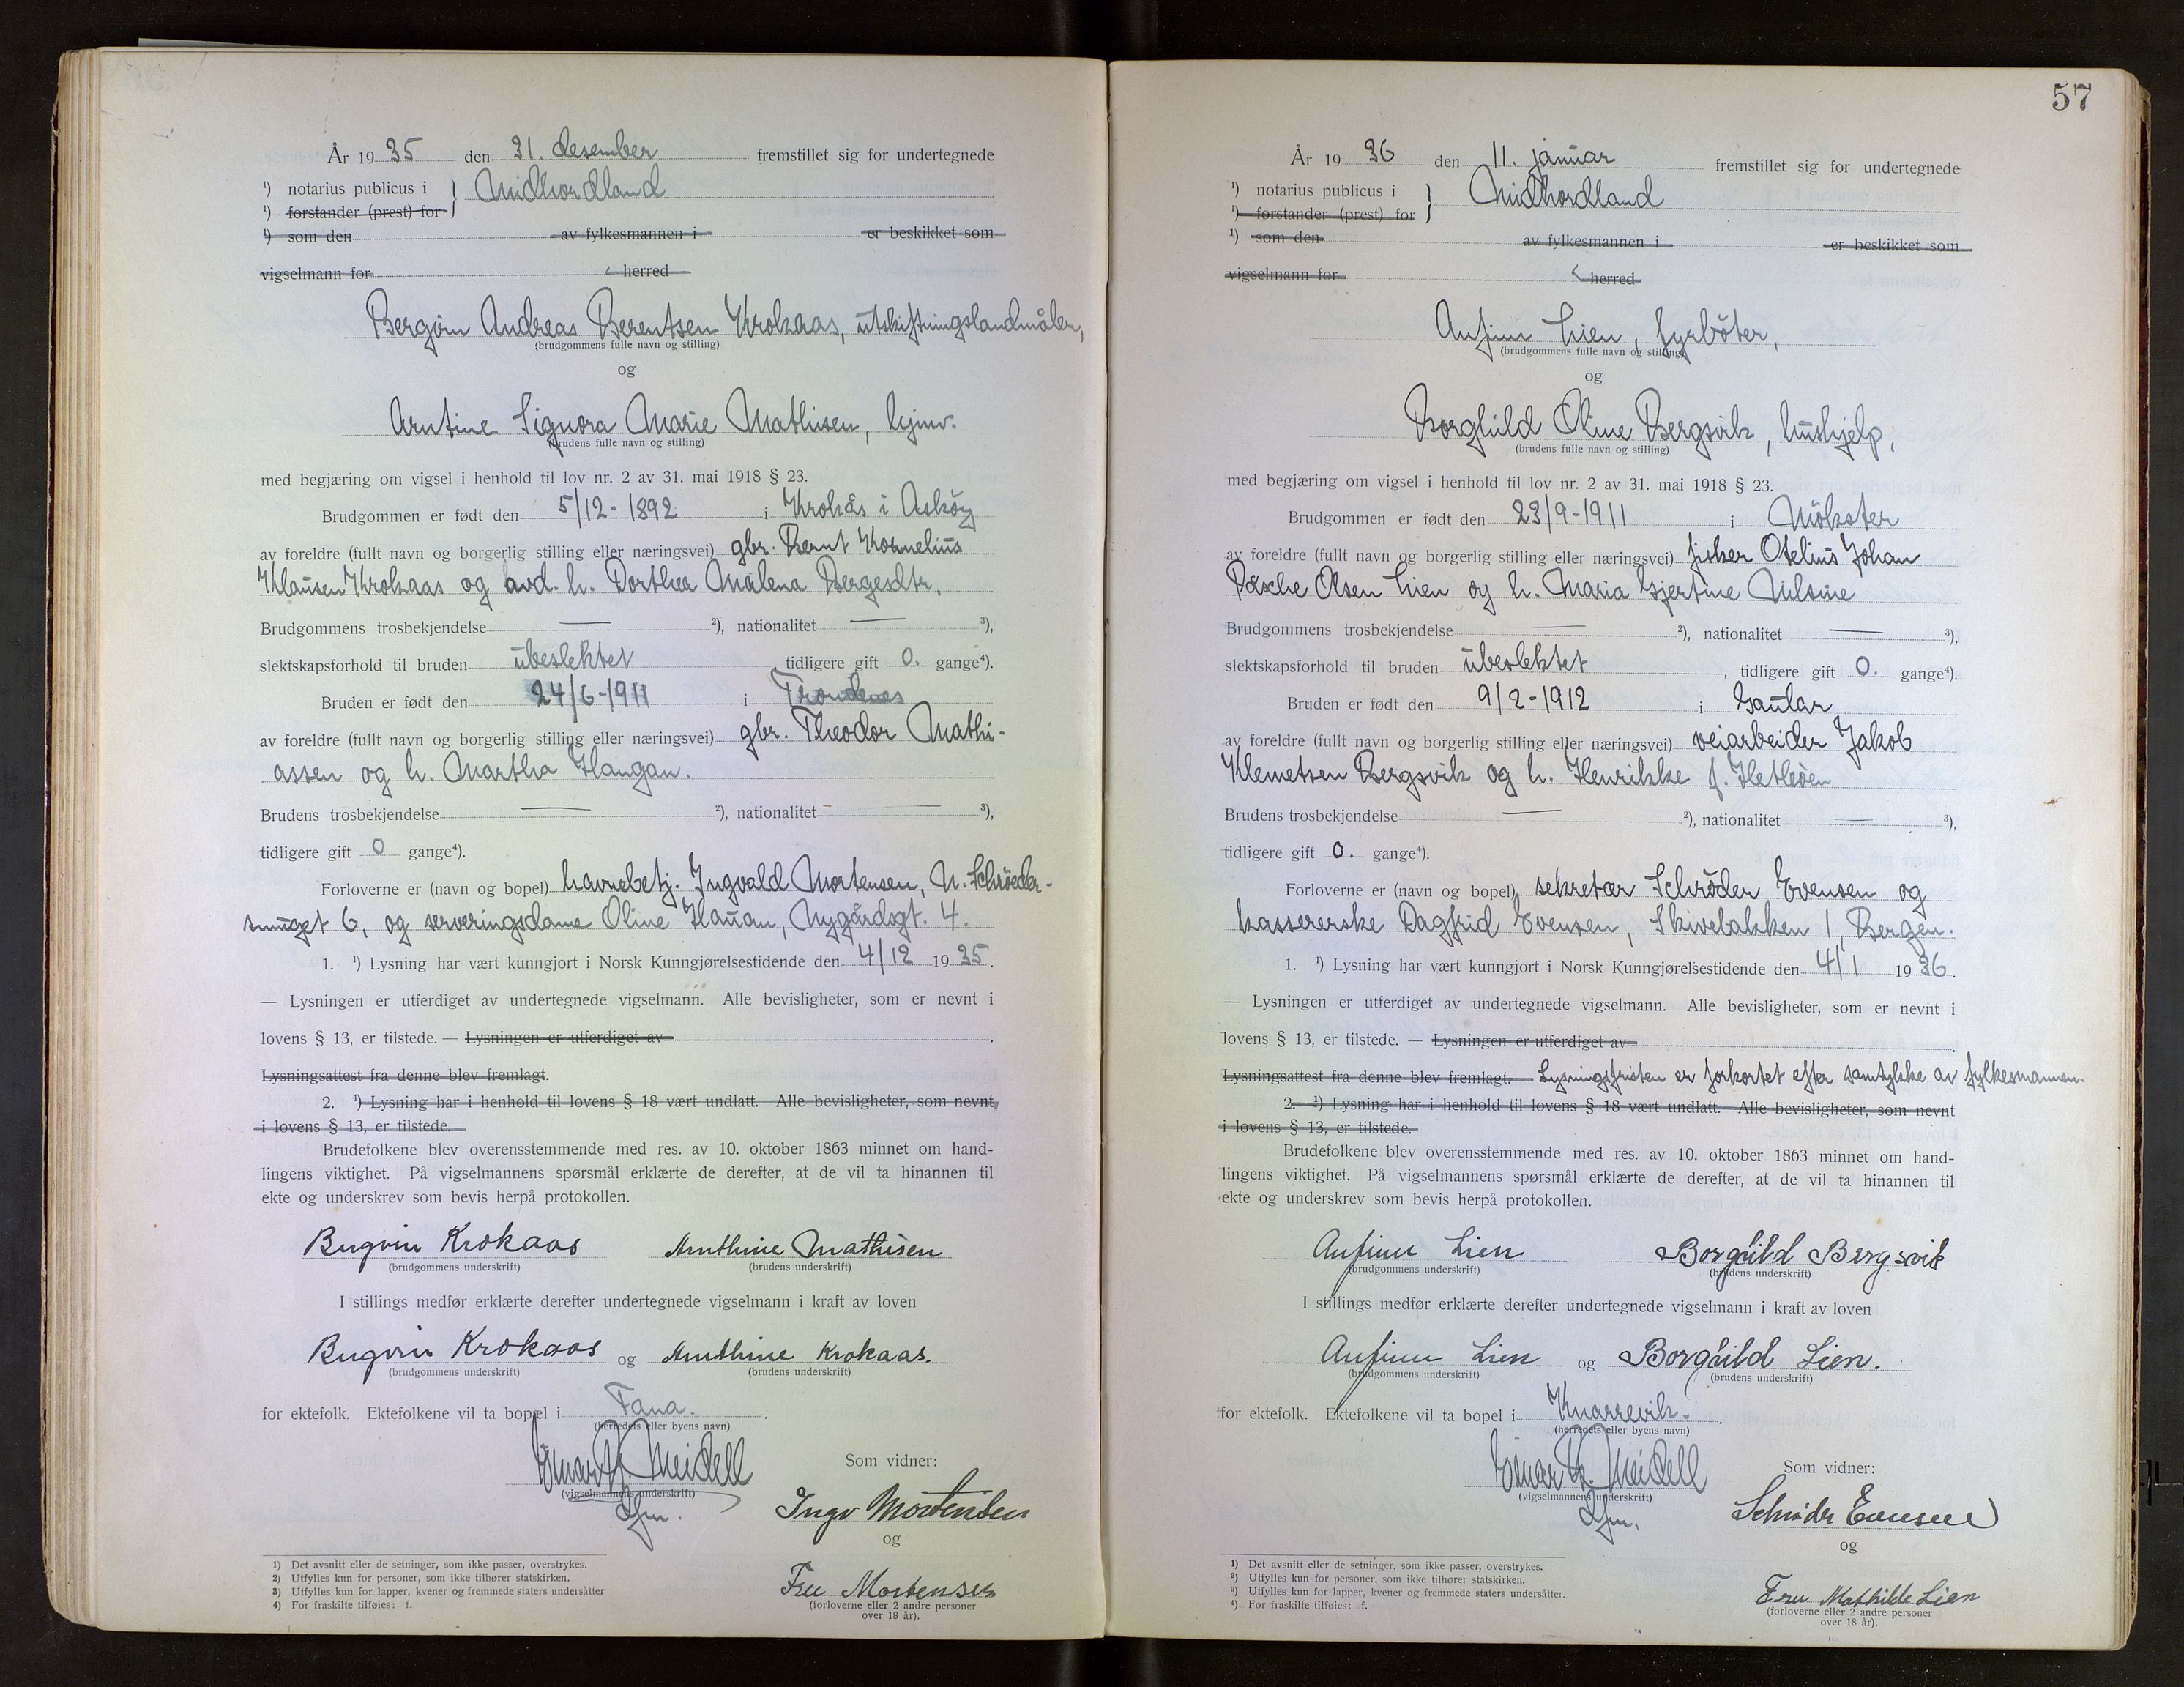 År 19 35 den 31. desember fremstillet sig for undertegnede
¹) notarius publicus i } Midhordland
¹) forstander (prest) for
¹) som den av fylkesmannen i er beskikket som
vigselmann for herred
Andreas Berentsen Krokaas, utskiftningslandmåler,
(brudgommens fulle navn og stilling)
og
Arntine Signora Marie Mathisen, hjmv.
(brudens fulle navn og stilling)
med begjæring om vigsel i henhold til lov nr. 2 av 31. mai 1918 § 23.
Brudgommen er født den 5/12 - 1892 i Krokås i Askøy
av foreldre (fullt navn og borgerlig stilling eller næringsvei) gbr. Bernt Kornelius
Klausen Krokaas og avd. h. Dorthea Malena Bergesdtr.
Brudgommens trosbekjendelse — ²), nationalitet — ³),
slektskapsforhold til bruden ubeslektet tidligere gift 0. gange⁴).
Bruden er født den 24/6-1911 i Trondenes
av foreldre (fullt navn og borgerlig stilling eller næringsvei) gbr. Theodor Mathi-
assen og h. Martha Haugan.
Brudens trosbekjendelse — ²), nationalitet — ³),
tidligere gift 0 gange⁴).
Forloverne er (navn og bopel) havnebetj. Ingvald Mortensen, N. Schrøeder-
smuget 6, og serveringsdame Oline Hauan, Nygårdsgt. 4.
1. ¹) Lysning har vært kunngjort i Norsk Kunngjørelsestidende den 4/12 19 35.
— Lysningen er utferdiget av undertegnede vigselmann. Alle bevisligheter, som er nevnt i
lovens § 13, er tilstede. — Lysningen er utferdiget av
Lysningsattest fra denne blev fremlagt.
2. ¹) Lysning har i henhold til lovens § 18 vært undlatt. Alle bevisligheter, som nevnt,
i lovens § 13, er tilstede.
Brudefolkene blev overensstemmende med res. av 10. oktober 1863 minnet om hand-
lingens viktighet. På vigselmannens spørsmål erklærte de derefter, at de vil ta hinannen til
ekte og underskrev som bevis herpå protokollen.
Bergvin Krokaas Arnthine Mathisen
(brudgommens underskrift) (brudens underskrift)
I stillings medfør erklærte derefter undertegnede vigselmann i kraft av loven
Bergvin Krokaas og Arnthine Krokaas.
(brudgommens underskrift) (brudens underskrift)
for ektefolk. Ektefolkene vil ta bopel i Fana.
(herredets eller byens navn)
Einar K. Meidell
(vigselmannens underskrift)
Som vidner:
Ingv Mortensen
og
Fru Mortensen
(forloverne eller 2 andre personer
over 18 år).
1) Det avsnitt eller de setninger, som ikke passer, overstrykes.
2) Utfylles kun for personer, som ikke tilhører statskirken.
3) Utfylles kun for lapper, kvener og fremmede staters undersåtter
4) For fraskilte tilføies: f.
57
År 19 36 den 11. januar fremstillet sig for undertegnede
¹) notarius publicus i } Midhordland
¹) forstander (prest) for
¹) som den av fylkesmannen i er beskikket som
vigselmann for herred
Anfinn Lien, fyrbøter,
(brudgommens fulle navn og stilling)
og
Borghild Oline Bergsvik, hushjelp,
(brudens fulle navn og stilling)
med begjæring om vigsel i henhold til lov nr. 2 av 31. mai 1918 § 23.
Brudgommen er født den 23/9-1911 i Møkster
av foreldre (fullt navn og borgerlig stilling eller næringsvei) fisker Otelius Johan
Pasche Olsen Lien og h. Maria Gjertine Nilsine
Brudgommens trosbekjendelse — ²), nationalitet — ³),
slektskapsforhold til bruden ubeslektet, tidligere gift 0. gange⁴).
Bruden er født den 9/2-1912 i Gaular
av foreldre (fullt navn og borgerlig stilling eller næringsvei) veiarbeider Jakob
Klemetsen Bergsvik og h. Henrikke f. Hetleøen
Brudens trosbekjendelse — ²), nationalitet — ³),
tidligere gift 0. gange⁴).
Forloverne er (navn og bopel) sekretær Schrøder Evensen og
kassererske Dagfrid Evensen, Skivebakken 1, Bergen.
1. ¹) Lysning har vært kunngjort i Norsk Kunngjørelsestidende den 4/1 19 36.
— Lysningen er utferdiget av undertegnede vigselmann. Alle bevisligheter, som er nevnt i
lovens § 13, er tilstede. — Lysningen er utferdiget av
Lysningsattest fra denne blev fremlagt. Lysningsfristen er forkortet efter samtykke av fylkesmannen.
2. ¹) Lysning har i henhold til lovens § 18 vært undlatt. Alle bevisligheter, som nevnt
i lovens § 13, er tilstede.
Brudefolkene blev overensstemmende med res. av 10. oktober 1863 minnet om hand-
lingens viktighet. På vigselmannens spørsmål erklærte de derefter, at de vil ta hinannen til
ekte og underskrev som bevis herpå protokollen.
Anfinn Lien Borghild Bergsvik
(brudgommens underskrift) (brudens underskrift)
I stillings medfør erklærte derefter undertegnede vigselmann i kraft av loven
Anfinn Lien og Borghild Lien.
(brudgommens underskrift) (brudens underskrift)
for ektefolk. Ektefolkene vil ta bopel i Knarrevik.
(herredets eller byens navn)
Einar K. Meidell
(vigselmannens underskrift)
Som vidner:
Schrøder Evensen
og
Fru Mathilde Lien
(forloverne eller 2 andre personer
over 18 år).
¹) Det avsnitt eller de setninger, som ikke passer, overstrykes.
²) Utfylles kun for personer, som ikke tilhører statskirken.
³) Utfylles kun for lapper, kvener og fremmede staters undersåtter.
⁴) For fraskilte tilføies: f.